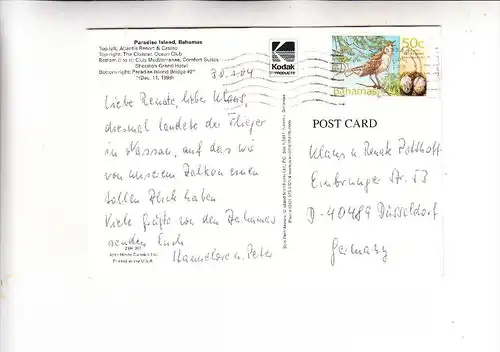 Paradise Island, Bahamas
Top left: Atlantis Resort & Casino
Top right: The Cloister, Ocean Club
Bottom (l to r): Club Mediterranee, Comfort Suites
Sheraton Grand Hotel
Bottom right: Paradise Island Bridge #2*
*(Dec. 11, 1998)
Kodak
PRODUCTS
50c
Bahamas
Liebe Renate, lieber Klaus,
diesmal landete der Flieger
in Nassau, auf das wir
von unserem Balkon einen
tollen Blick haben
Viele Grüße von den Bahamas
senden Euch
Hannelore u. Peter
John Hinde Curteich Inc.
Printed in the U.S.A.
POST CARD
Klaus u Renate Potthoff
Einbrunger Str. 53
D-40489 Düsseldorf
Germany